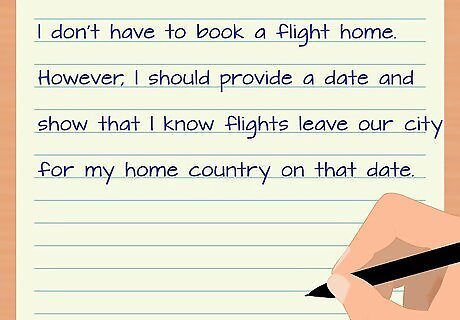 I don't have to book a flight home.
However, I should provide a date and
show that I know flights leave our city
for my home country on that date.